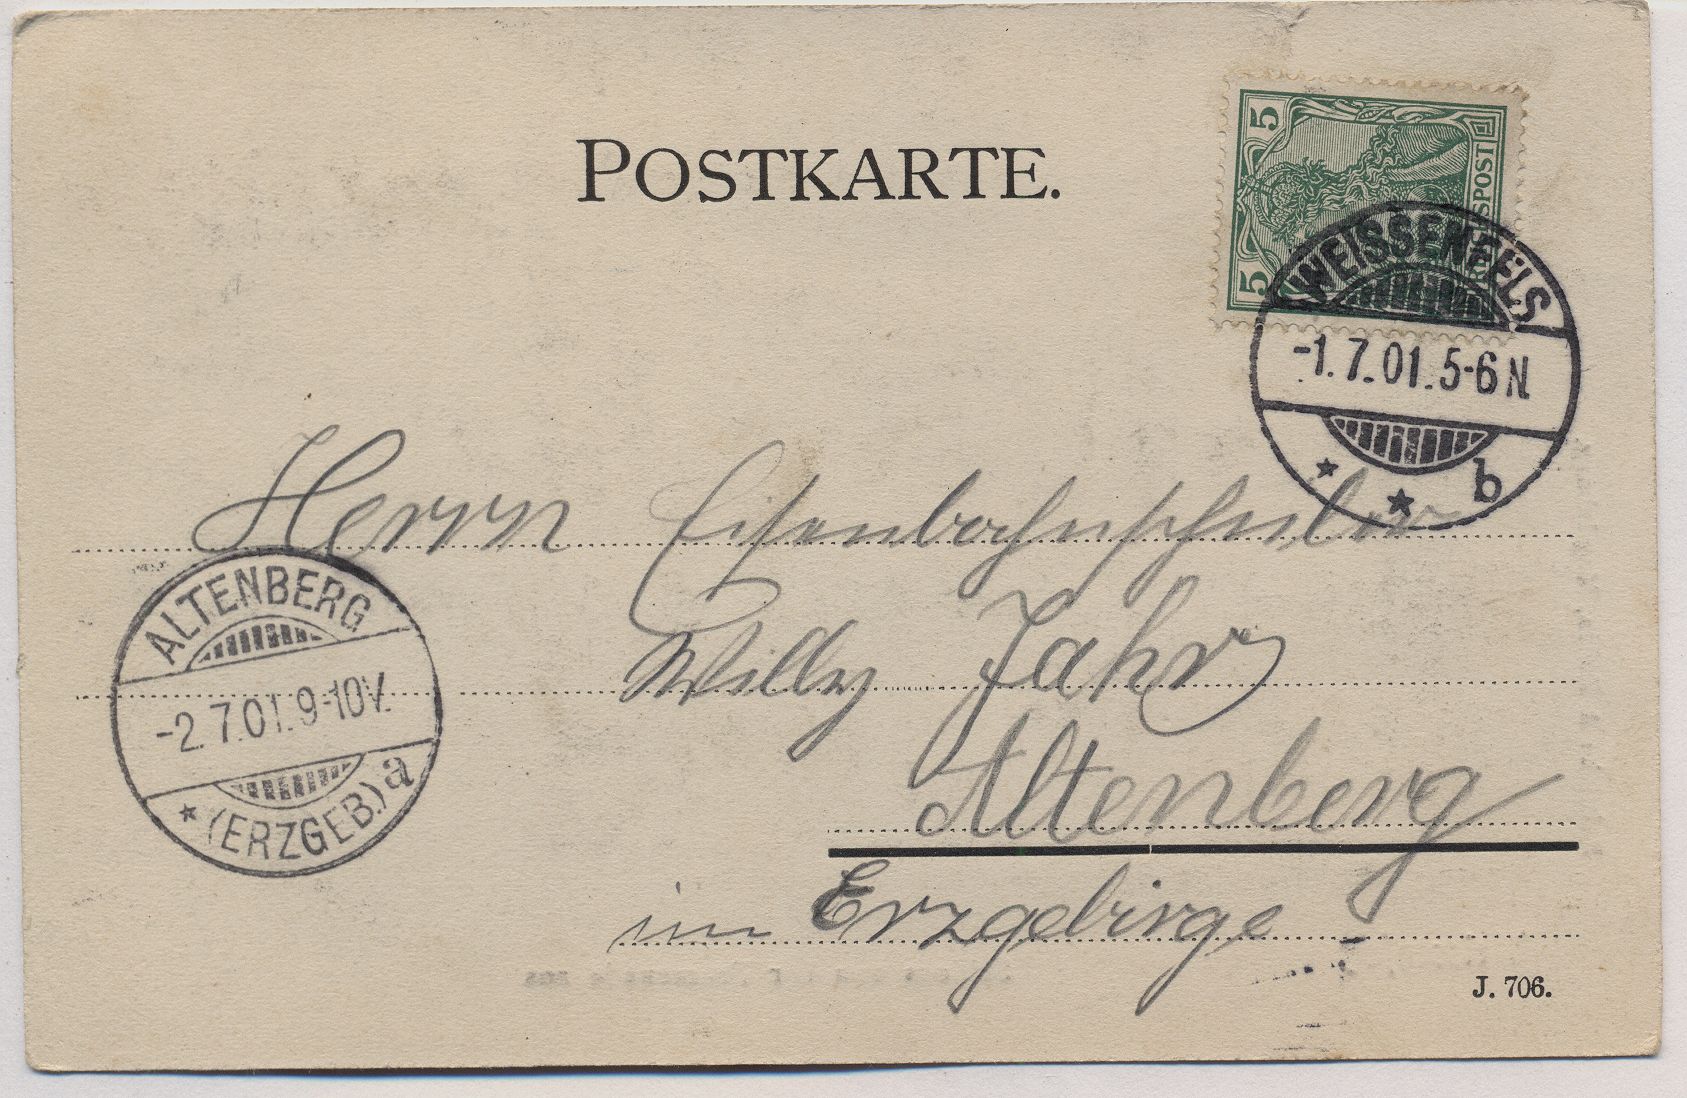 POSTKARTE.
5
5
REICHSPOST
WEISSENFELS
-1.7.01.5-6N.
* * b
Herrn Eisenbahnschüler
Willy Jahr
Altenberg
im Erzgebirge
ALTENBERG
-2.7.01.9-10V.
* (ERZGEB.) a
J. 706.